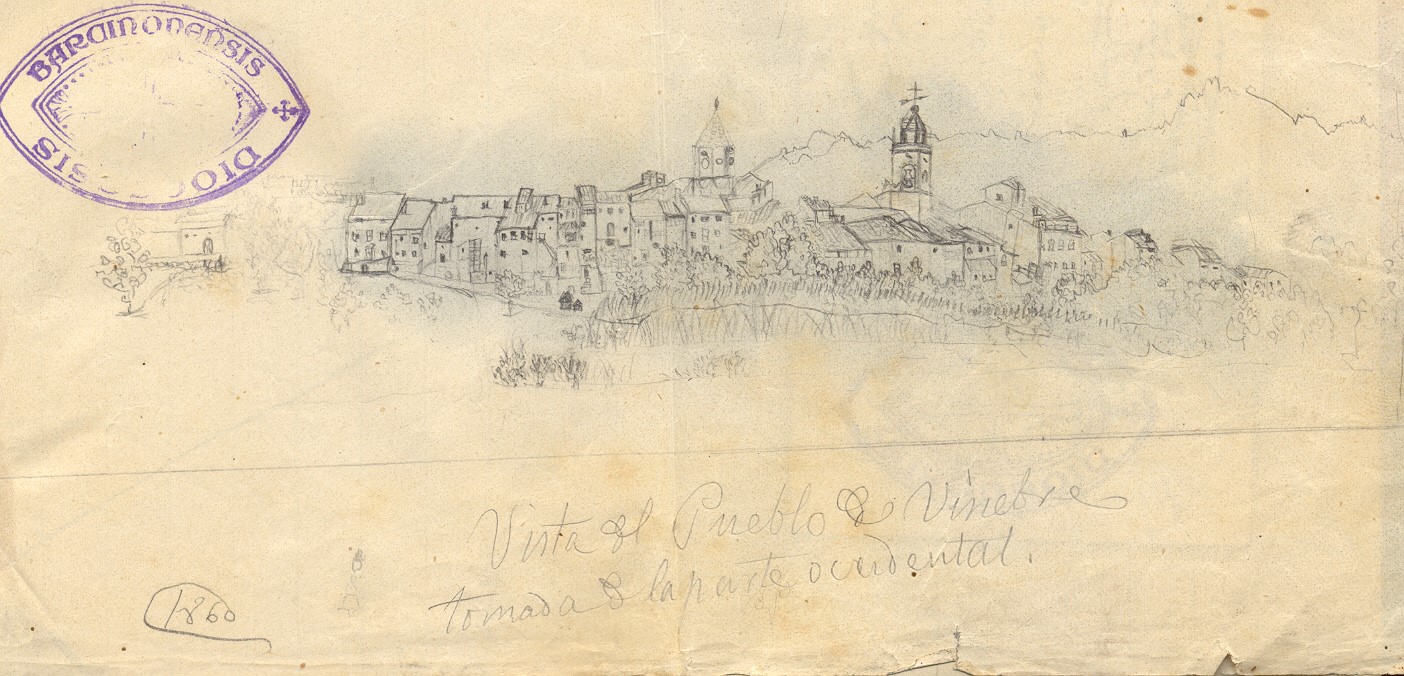 BARCINONENSIS
Vista del Pueblo de Vinebre
tomada de la parte occidental.
1860